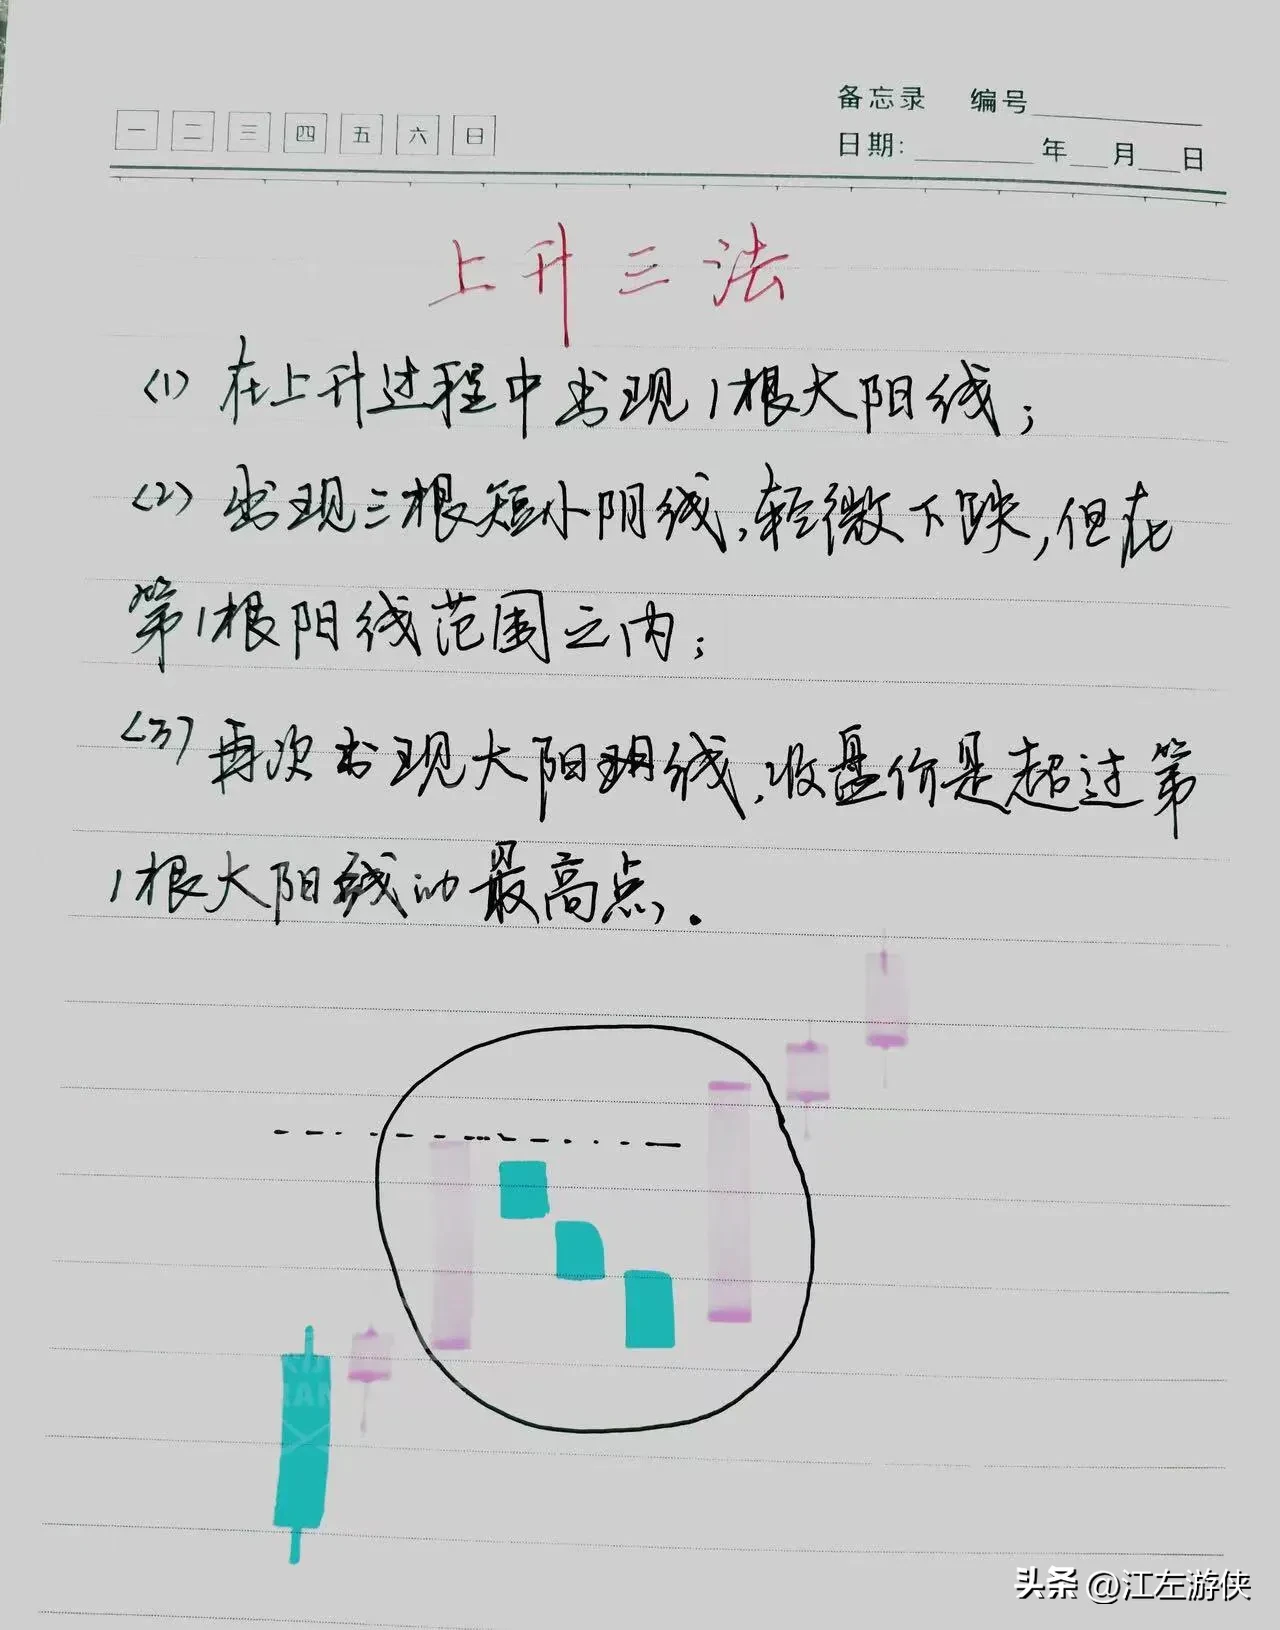 一 二 三 四 五 六 日
备忘录 编号
日期: 年 月 日
上升三法
(1) 在上升过程中出现1根大阳线;
(2) 出现三根短小阴线,轻微下跌,但在
第1根阳线范围之内;
(3) 再次出现大阳线,收盘价是超过第
1根大阳线的最高点.
头条 @江左游侠